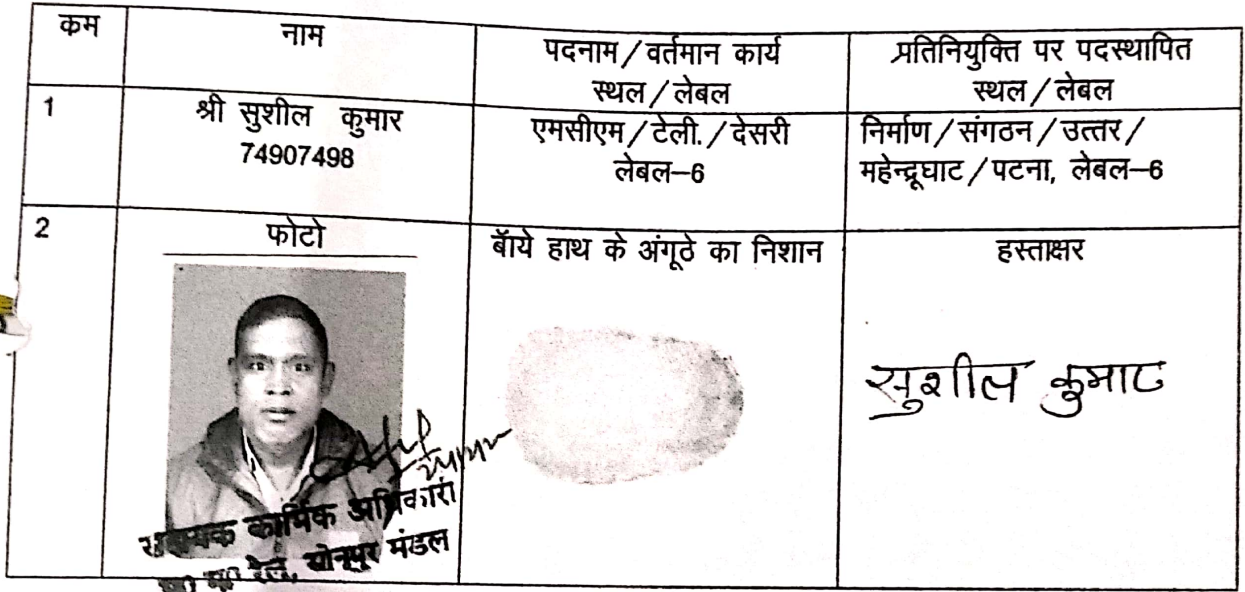 कम
नाम
पदनाम/वर्तमान कार्य
स्थल/लेबल
प्रतिनियुक्ति पर पदस्थापित
स्थल/लेबल
1
श्री सुशील कुमार
74907498
एमसीएम/टेली./देसरी
लेबल–6
निर्माण/संगठन/उत्तर/
महेन्द्रूघाट/पटना, लेबल–6
2
फोटो
बॅाये हाथ के अंगूठे का निशान
हस्ताक्षर
सुशील कुमार
कार्मिक अधिकारी
रेल, सोनपुर मंडल